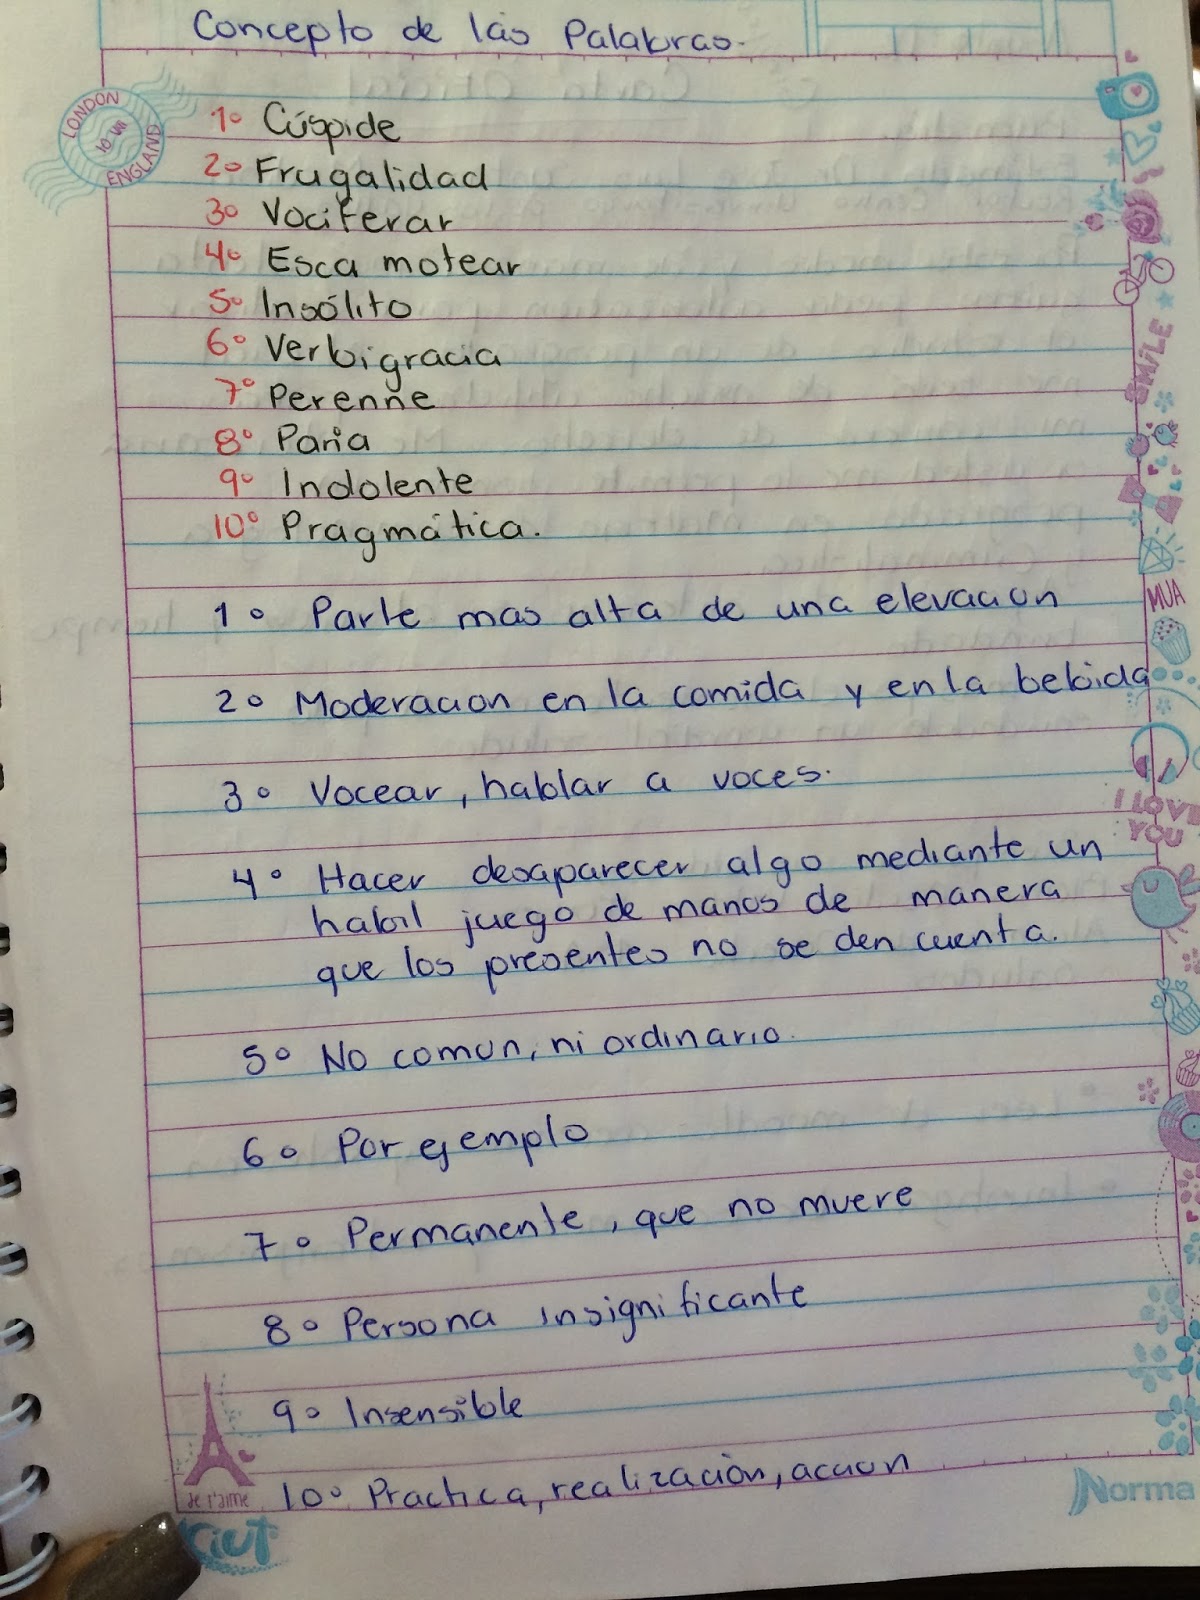 Concepto de las Palabras.
LONDON
10 VII
ENGLAND
1º Cúspide
2º Frugalidad
3º Vociferar
4º Esca motear
5º Insólito
6º Verbigracia
7º Perenne
8º Paria
9º Indolente
10º Pragmática.
1º Parte mas alta de una elevacion
2º Moderacion en la comida y en la bebida
3º Vocear, hablar a voces.
4º Hacer desaparecer algo mediante un
habil juego de manos de manera
que los presentes no se den cuenta.
5º No comun, ni ordinario.
6º Por ejemplo
7º Permanente, que no muere
8º Persona insignificante
9º Insensible
10º Practica, realización, accion
SMILE
MUA
I LOVE
YOU
Je t'aime
Kiut
Norma